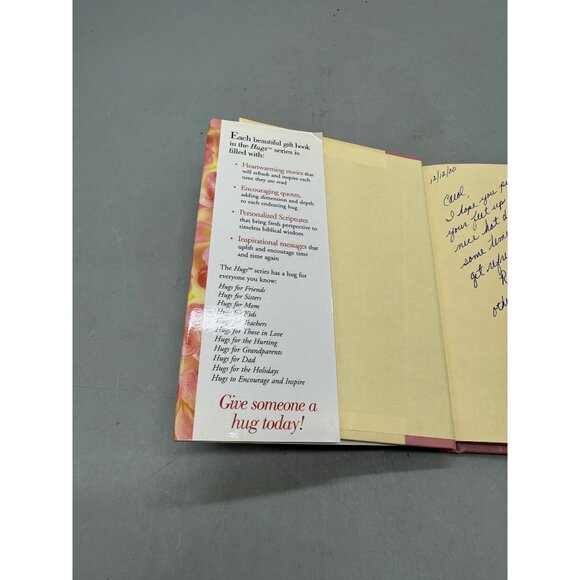 Each beautiful gift book
in the Hugs™ series is
filled with:
• Heartwarming stories that
will refresh and inspire each
time they are read
• Encouraging quotes,
adding dimension and depth
to each endearing hug
• Personalized Scriptures
that bring fresh perspective to
timeless biblical wisdom
• Inspirational messages that
uplift and encourage time
and time again
The Hugs™ series has a hug for
everyone you know:
Hugs for Friends
Hugs for Sisters
Hugs for Mom
Hugs for Kids
Hugs for Teachers
Hugs for Those in Love
Hugs for the Hurting
Hugs for Grandparents
Hugs for Dad
Hugs for the Holidays
Hugs to Encourage and Inspire
Give someone a
hug today!
12/12/00
Carol,
I hope you
your feet up
nice hot
some time
get refre
R
othe